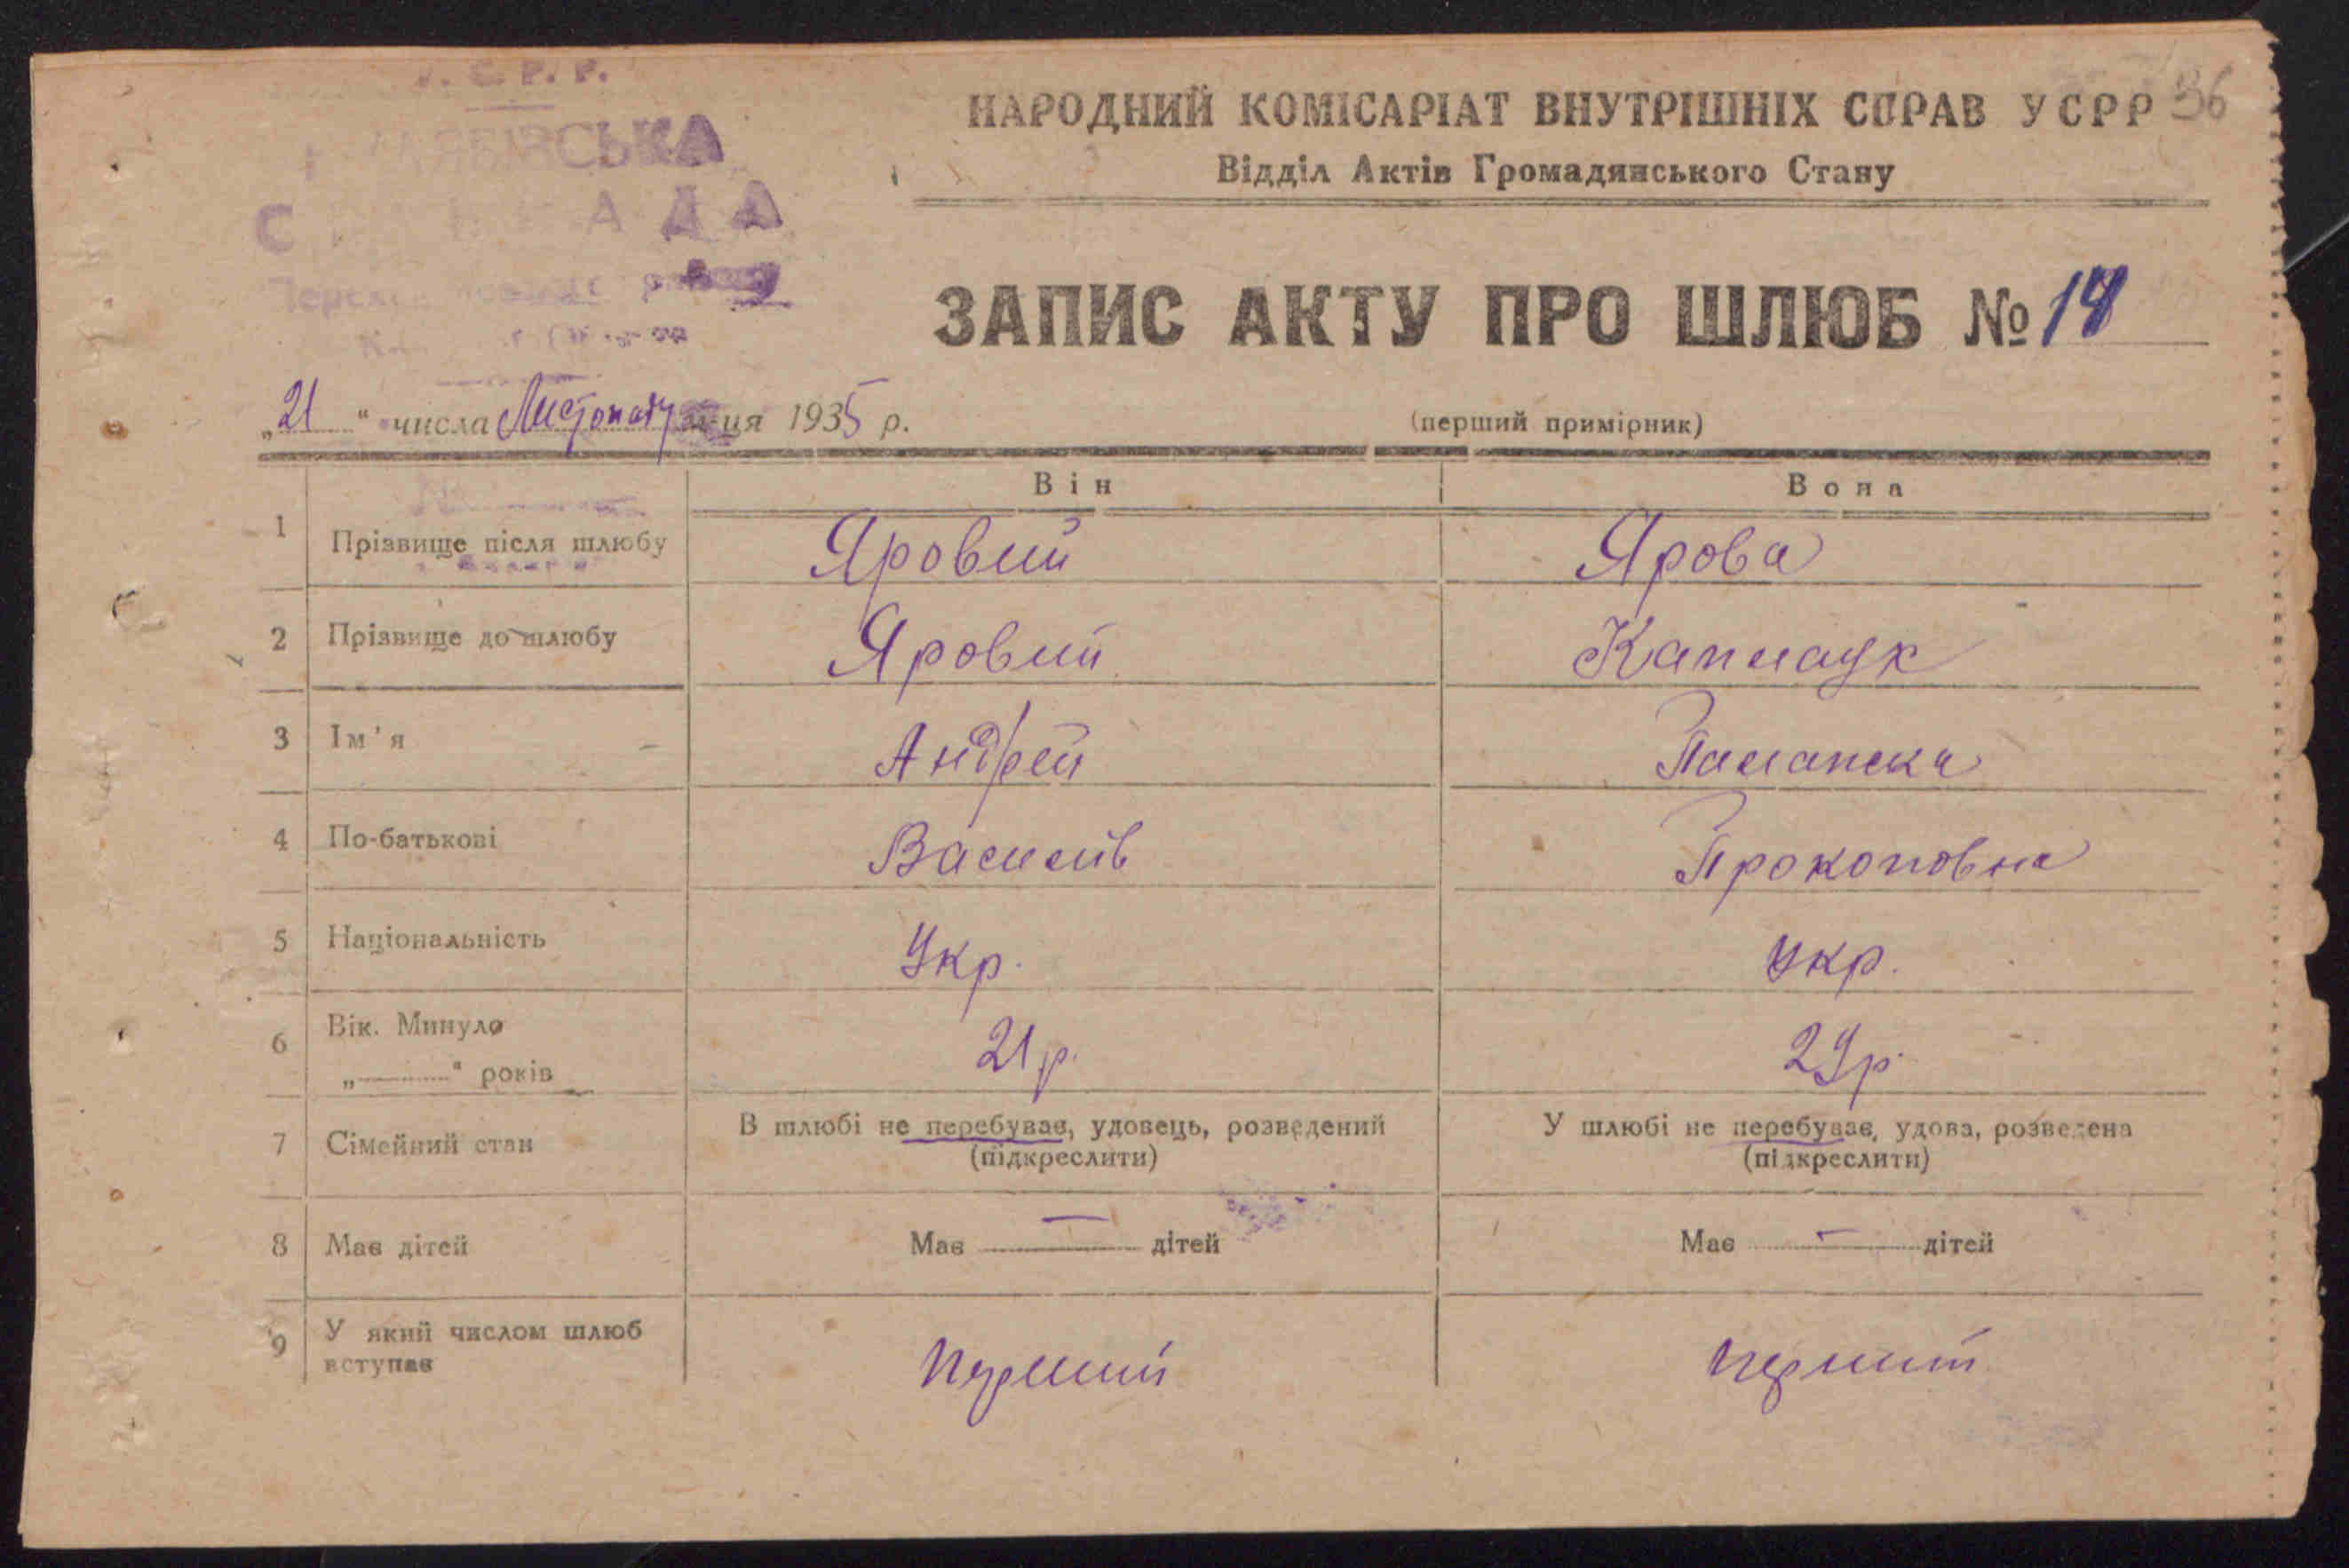 У. С. Р. Р.
НАРОДНИЙ КОМІСАРІАТ ВНУТРІШНІХ СПРАВ УСРР 36
Відділ Актів Громадянського Стану
ЗАПИС АКТУ ПРО ШЛЮБ №
„21" числа Листопаду м-ця 1935 р.
(перший примірник)
Він Вона
1 Прізвище після шлюбу Яровий Ярова
2 Прізвище до шлюбу Яровий
3 Ім'я Андрей
4 По-батькові Василів Прокоповна
5 Національність Укр. Укр.
6 Вік. Минуло „ " років 21 р. 29 р.
7 Сімейний стан В шлюбі не перебував, удовець, розведений (підкреслити) У шлюбі не перебував, удова, розведена (підкреслити)
8 Має дітей Має — дітей Має — дітей
9 У який числом шлюб вступає перший перший